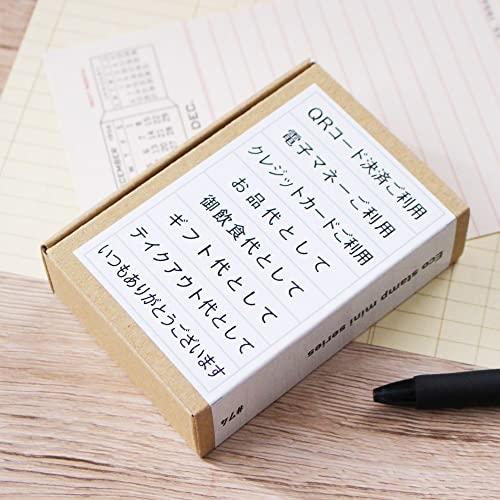 QRコード決済ご利用
電子マネーご利用
クレジットカードご利用
お品代として
御飲食代として
ギフト代として
テイクアウト代として
いつもありがとうございます
Eco stamp mini series
DEC.